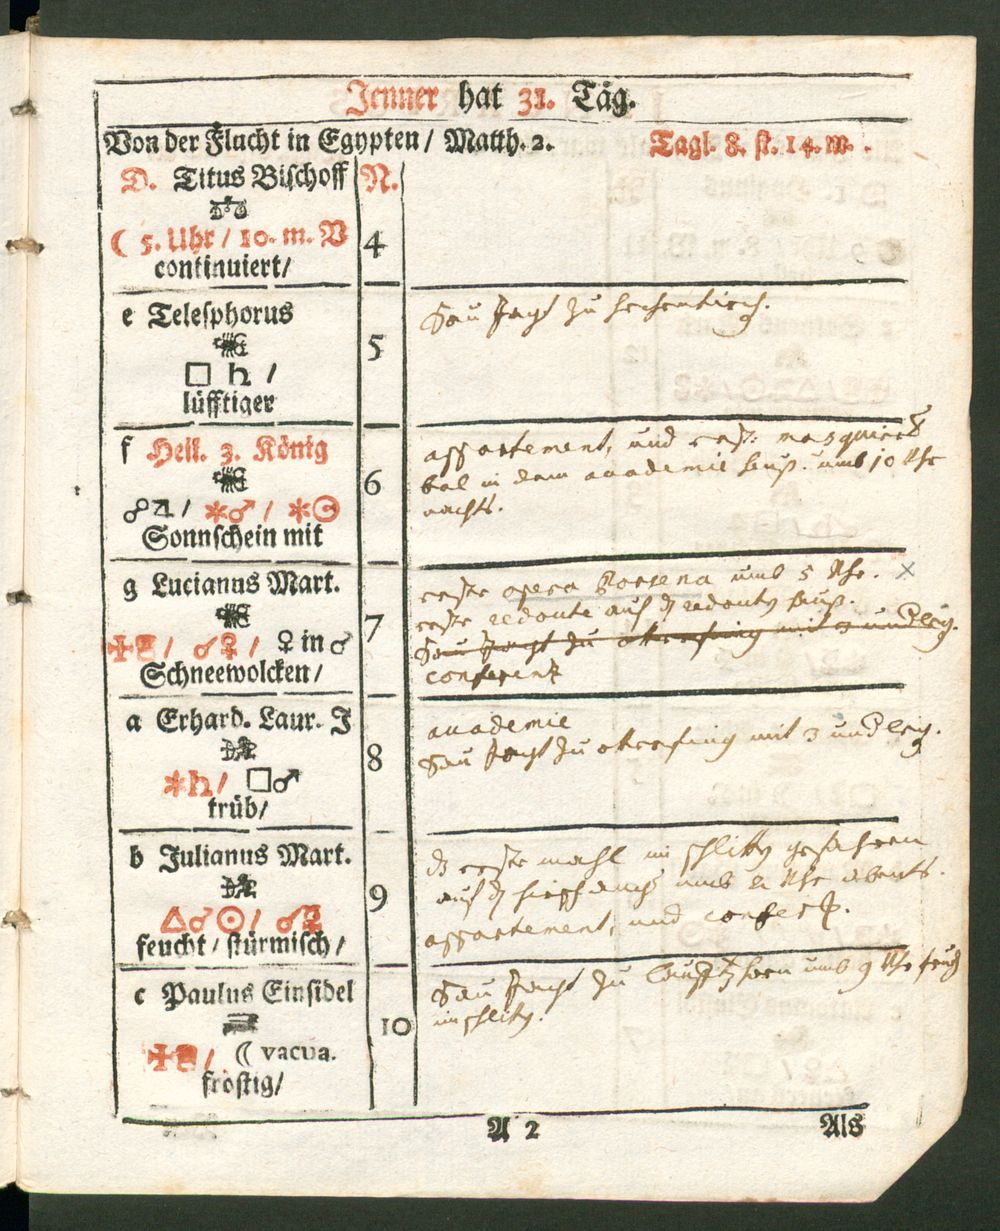 Jenner hat 31. Täg.
Von der Flucht in Egypten / Matth. 2. Tagl. 8. st. 14. m.
D. Titus Bischoff N.
☾ 5. Uhr / 10. m. V 4
continuiert /
e Telesphorus
5
□ ♄ /
lüfftiger
Sau Jagt zu
f Heil. 3. König
6
☍♃ / ✱♂ / ✱☉
Sonnschein mit
appartement, und erste masquirte
bal in dem academie hauß. umb 10 Uhr
nachts.
g Lucianus Mart.
7
♂♀ / ♀ in ♂
Schneewolcken /
erste opera Porsena umb 5 Uhr. ×
erste redoute auf dem redouten hauß.
Sau Jagt zu mit 3 und
conferenz
a Erhard. Laur. J
8
✱♄ / □♂
trüb /
academie
Sau Jagt zu mit 3 und
b Julianus Mart.
9
△♂☉ /
feucht / stürmisch /
erste mahl im schlitten gefahren
auf umb 2 Uhr abents.
appartement, und concert.
c Paulus Einsidel
10
☾ vacua.
frostig /
Sau Jagt zu umb 9 Uhr
im schlitten.
A 2 Als